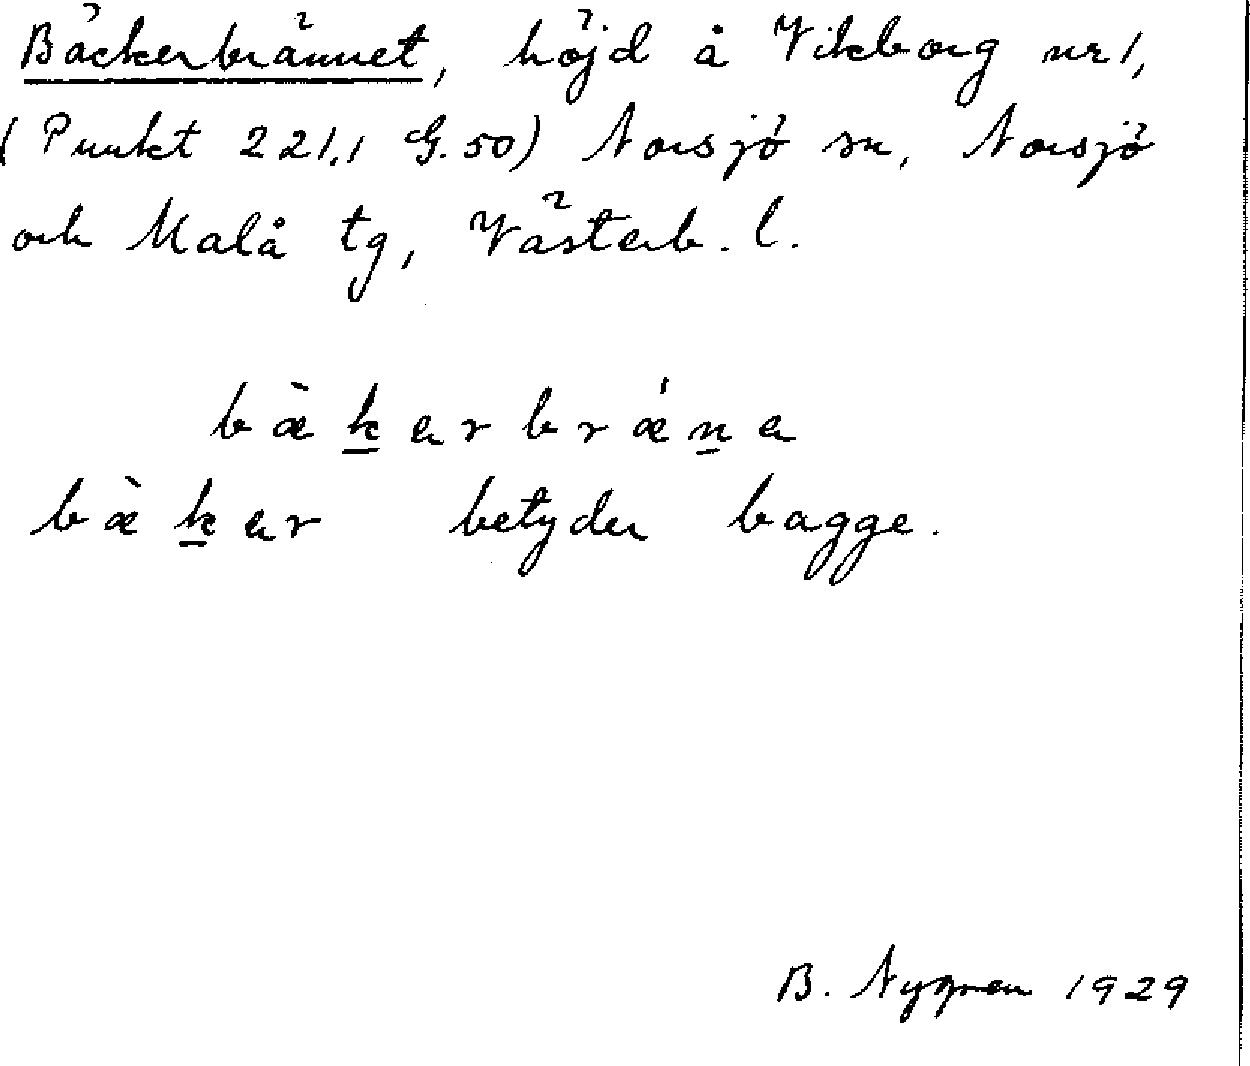 Bäckerbrännet, höjd å Vikborg nr 1,
(Punkt 221,1 G. 50) Norsjö sn, Norsjö
och Malå tg, Västerb. l.
bæ̀k̲erbrǽn̲e
bæ̀k̲er betyder bagge.
B. Nygren 1929